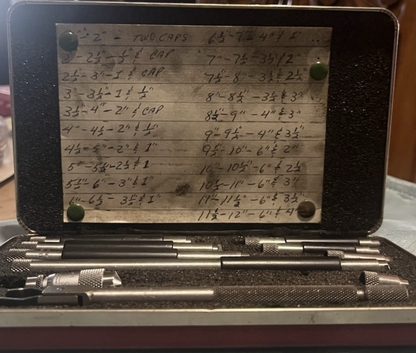 2" - TWO CAPS
2-2½-½" & CAP
2½-3"-1 & CAP
3"-3½-1 & ½"
3½-4"-2" & CAP
4"-4½-2" & ½"
4½-5"-2" & 1"
5"-5½-2½ & 1
5½-6"-3" & 1"
6"-6½-3½ & 1"
6½-7"-4" &
7"-7½-3½ / 2"
7½-8"-3½ & 2½
8"-8½"-3½ & 3"
8½-9"-4" & 3"
9"-9½-4" & 3½"
9½-10"-6" & 2"
10"-10½"-6" & 2½
10½-11"-6" & 3"
11"-11½-6" & 3½
11½-12"-6" & 4"